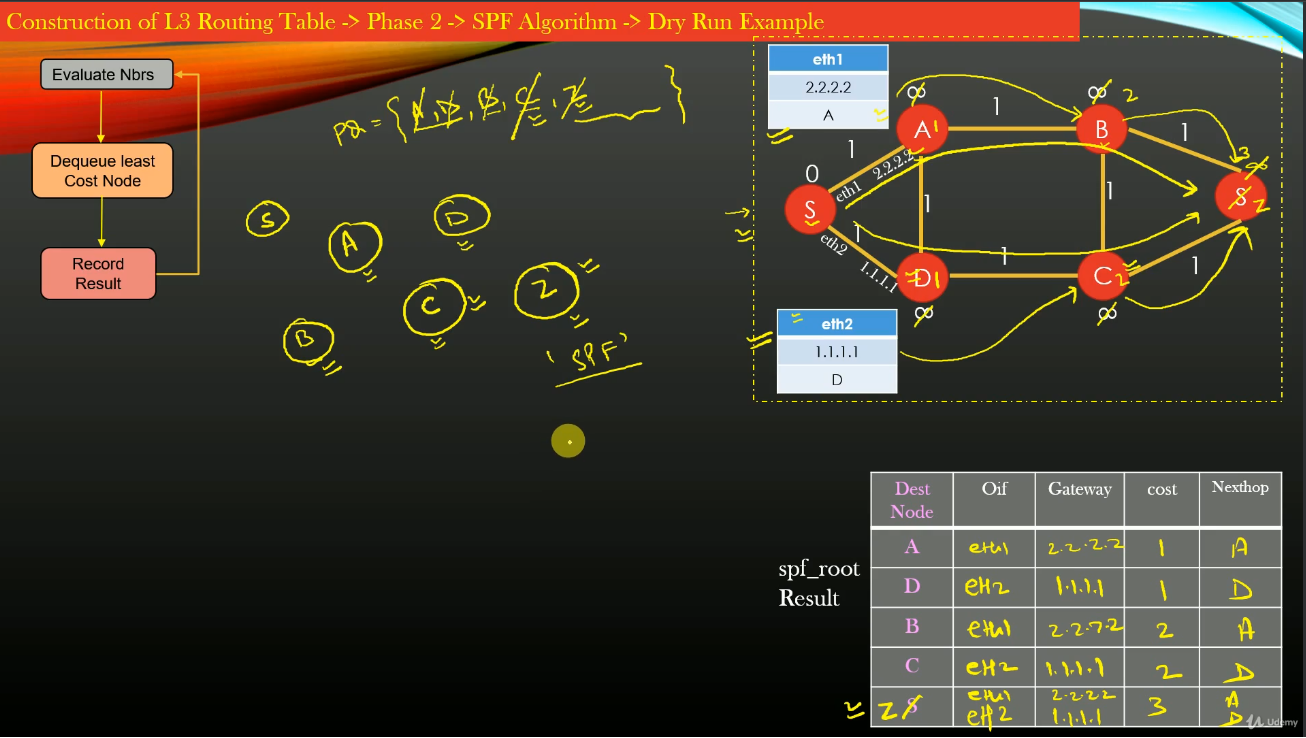 Construction of L3 Routing Table -> Phase 2 -> SPF Algorithm -> Dry Run Example
Evaluate Nbrs
Dequeue least
Cost Node
Record
Result
PQ = {A, D, B, C, Z }
S
A
D
C
Z
B
'SPF'
eth1
2.2.2.2
A
eth2
1.1.1.1
D
∞
∞ 2
1
A 1
B
1
3 ∞
1
0
eth1 2.2.2.2
S
1
1
S Z
eth2
1
1.1.1.1
1
D 1
C 2
1
∞
∞
spf_root
Result
Dest Node Oif Gateway cost Nexthop
A eth1 2.2.2.2 1 A
D eth2 1.1.1.1 1 D
B eth1 2.2.2.2 2 A
C eth2 1.1.1.1 2 D
Z S eth1 2.2.2.2 3 A
eth2 1.1.1.1 D
Udemy